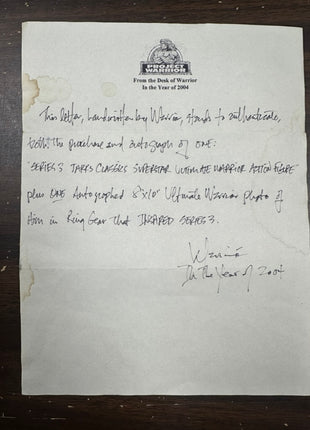 PROJECT
WARRIOR
From the Desk of Warrior
In the Year of 2004
This letter, handwritten by Warrior, stands to authenticate,
both, the purchase and autograph of one:
SERIES 3 JAKKS CLASSICS SUPERSTAR ULTIMATE WARRIOR ACTION FIGURE
plus ONE Autographed 8"x10" Ultimate Warrior photo of
Him in Ring Gear that INSPIRED SERIES 3.
Warrior
In the Year of 2004